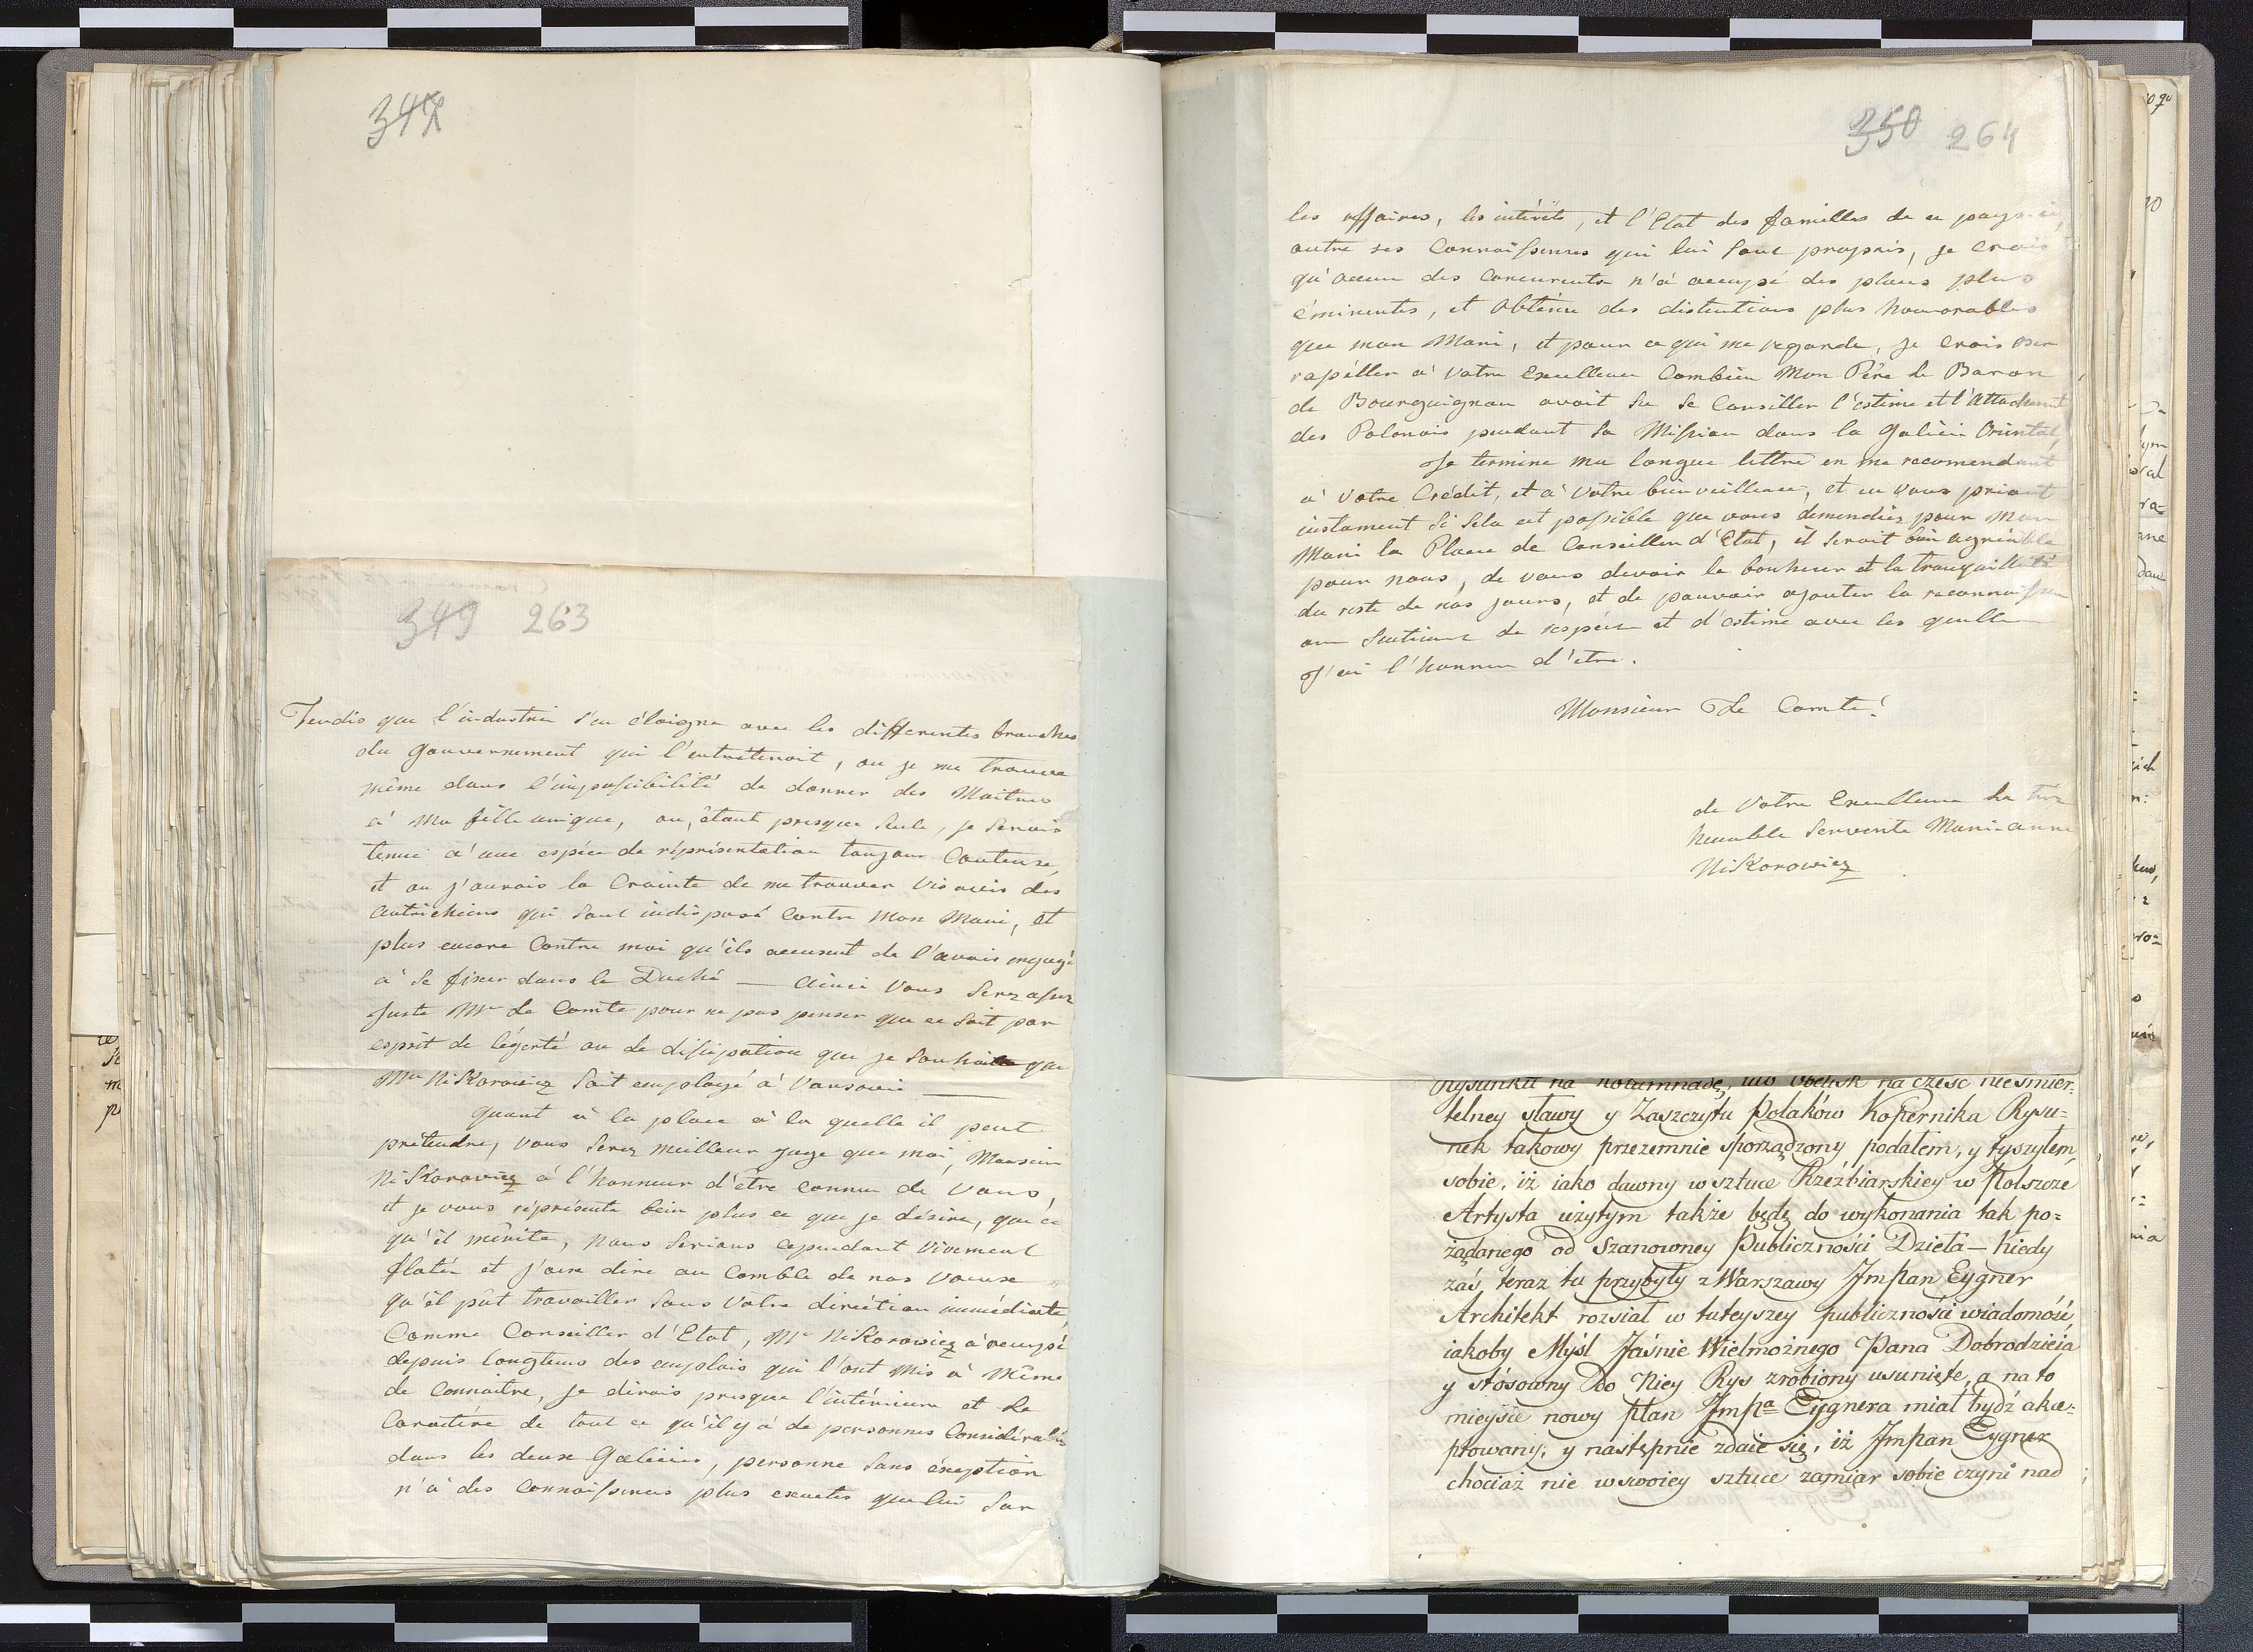 347
349 263
Tendis que l'industrie s'en éloigne avec les differentes branches
du gouvernement qui l'entretenoit, ou je me trouve
même dans l'impossibilité de donner des Maitres
a' Ma fille unique, ou, étant presque Seule, je Serais
tenue a' une espèce de réprésentation toujour Couteuse,
et ou j'aurais la Crainte de me trouver Vis avis des
autrichiens qui Sont indisposé Contre Mon Mari, et
plus encore Contre moi qu'ils accusent de l'avoir engagé
a' Se fixer dans le Duché — Ainsi Vous Serez assez
Juste Mr le Comte pour ne pas penser que ce Soit par
esprit de légerté ou de dissipation que je Souhaite que
Mr Nikorowicz Soit employé a' Varsovie —
Quant à la place à la quelle il peut
prétendre, Vous Serez meilleur juge que moi, Monsieur
Nikorowicz a l'honneur d'être Connu de Vous,
et je vous réprésente bein plus ce que je désire, que ce
qu'il mérite, Nous Serions cependant Vivement
flatés et j'ose dire au Comble de nos Voeux
qu'il pût travailler Sous Votre diréction immédiate,
Comme Conseiller d'Etat, Mr Nikorowicz à occupé
depuis longtems des emplois qui l'ont Mis à Même
de Connaitre, je dirais presque l'intérieure et le
Caractére de tout ce qu'il y à de personnes Considérables
dans les deux Galicies, personne Sans éxeption
n'à des Connaissences plus exactes que lui Sur
350 264
les affaires, les intérêts, et l'Etat des familles de ce pays-ci,
outre ses Connaissences qui lui Sont propres, je Crois
qu'aucun des Concurents n'à occupé des places plus
éminentes, et Obtenu des distintions plus honnorables
que mon Mari, et pour ce qui me regarde, je Crois oser
rapéller a' Votre Excellence Combien Mon Père le Baron
de Bourguignon avoit Su Se Consiller l'estime et l'Attachement
des Polonais pendant Sa Mission dans la Galicie Oriental,
Je termine ma longue lettre en me recomendant
a' Votre Crédit, et a' Votre bienveillence, et en Vous priant
instament Si Sela est possible que vous demendiez pour Mon
Mari la Place de Conseiller d'Etat, il Seroit bien agréable
pour nous, de vous devoir le bonheur et la tranquillité
du reste de nos jours, et de pouvoir ajouter la reconnaissence
au Sentiment de respect et d'estime avec les quelle
J'ai l'honneur d'etre.
Monsieur Le Comte!
de Votre Excellence la très
humble Servente Marianne
Nikorowicz
Rysunku na kolumnadę, lub Obelisk na cześć nieśmier:
telney sławy y Zaszczytu Polaków Kopernika Rysu=
nek takowy przezemnie sporządzony podałem, y tyszyłem
sobie, iż iako dawny w sztuce Rzeźbiarskiey w Polszcze
Artysta użytym także będę do wykonania tak po=
żądanego od Szanowney Publiczności Dzieła — Kiedy
zaś, teraz tu przybyły z Warszawy Jmpan Eygner
Architekt rozsiał w tuteyszey publiczności wiadomość,
iakoby Myśl Jaśnie Wielmożnego Pana Dobrodzieia
y stósowny do Niey Rys zrobiony usunięte, a na to
mieyśce nowy plan Jmpa Eygnera miał bydź akce=
ptowany, y następnie zdaie się, iż Jmpan Eygner
chociaż nie w swoiey sztuce zamiar sobie czyni nad